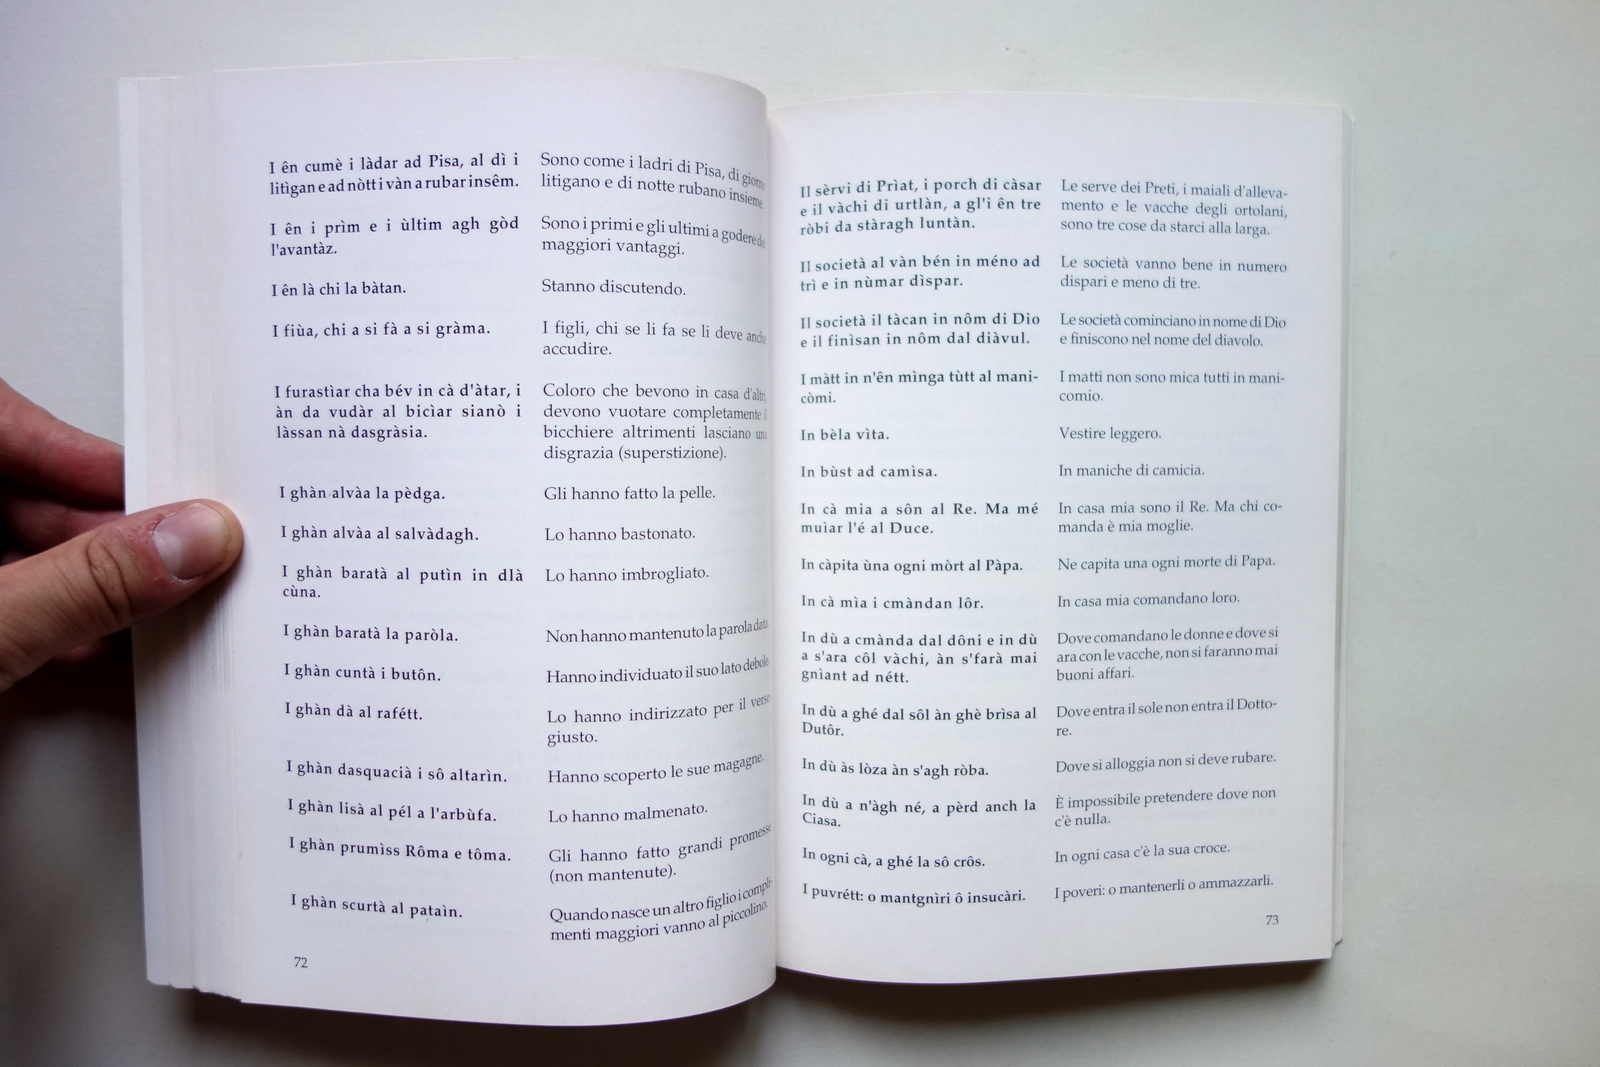 I ên cumè i làdar ad Pisa, al dì i
litìgan e ad nòtt i vàn a rubar insêm.
Sono come i ladri di Pisa, di giorno
litigano e di notte rubano insieme.
I ên i prìm e i ùltim agh gòd
l'avantàz.
Sono i primi e gli ultimi a godere dei
maggiori vantaggi.
I ên là chi la bàtan.
Stanno discutendo.
I fiùa, chi a si fà a si gràma.
I figli, chi se li fa se li deve anche
accudire.
I furastìar cha bév in cà d'àtar, i
àn da vudàr al bicìar sianò i
làssan nà dasgràsia.
Coloro che bevono in casa d'altri,
devono vuotare completamente il
bicchiere altrimenti lasciano una
disgrazia (superstizione).
I ghàn alvàa la pèdga.
Gli hanno fatto la pelle.
I ghàn alvàa al salvàdagh.
Lo hanno bastonato.
I ghàn baratà al putìn in dlà
cùna.
Lo hanno imbrogliato.
I ghàn baratà la paròla.
Non hanno mantenuto la parola data.
I ghàn cuntà i butôn.
Hanno individuato il suo lato debole.
I ghàn dà al rafétt.
Lo hanno indirizzato per il verso
giusto.
I ghàn dasquacià i sô altarìn.
Hanno scoperto le sue magagne.
I ghàn lisà al pél a l'arbùfa.
Lo hanno malmenato.
I ghàn prumìss Rôma e tôma.
Gli hanno fatto grandi promesse
(non mantenute).
I ghàn scurtà al pataìn.
Quando nasce un altro figlio i compli-
menti maggiori vanno al piccolino.
72
Il sèrvi di Prìat, i porch di càsar
e il vàchi di urtlàn, a gl'i ên tre
ròbi da stàragh luntàn.
Le serve dei Preti, i maiali d'alleva-
mento e le vacche degli ortolani,
sono tre cose da starci alla larga.
Il società al vàn bén in méno ad
trì e in nùmar dìspar.
Le società vanno bene in numero
dispari e meno di tre.
Il società il tàcan in nôm di Dio
e il finìsan in nôm dal diàvul.
Le società cominciano in nome di Dio
e finiscono nel nome del diavolo.
I màtt in n'ên mìnga tùtt al mani-
còmi.
I matti non sono mica tutti in mani-
comio.
In bèla vìta.
Vestire leggero.
In bùst ad camìsa.
In maniche di camicia.
In cà mia a sôn al Re. Ma mé
muìar l'é al Duce.
In casa mia sono il Re. Ma chi co-
manda è mia moglie.
In càpita ùna ogni mòrt al Pàpa.
Ne capita una ogni morte di Papa.
In cà mìa i cmàndan lôr.
In casa mia comandano loro.
In dù a cmànda dal dôni e in dù
a s'ara côl vàchi, àn s'farà mai
gnìant ad nétt.
Dove comandano le donne e dove si
ara con le vacche, non si faranno mai
buoni affari.
In dù a ghé dal sôl àn ghè brìsa al
Dutôr.
Dove entra il sole non entra il Dotto-
re.
In dù às lòza àn s'agh ròba.
Dove si alloggia non si deve rubare.
In dù a n'àgh né, a pèrd anch la
Ciasa.
È impossibile pretendere dove non
c'è nulla.
In ogni cà, a ghé la sô crôs.
In ogni casa c'è la sua croce.
I puvrétt: o mantgnìri ô insucàri.
I poveri: o mantenerli o ammazzarli.
73